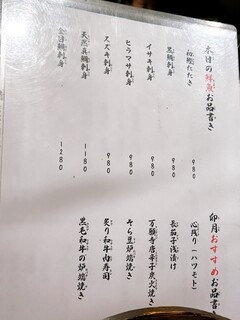 本日の鮮魚お品書き
初鰹たたき 980
黒鯛刺身 980
イサキ刺身 980
ヒラマサ刺身 980
スズキ刺身 980
天然真鯛刺身 1180
金目鯛刺身 1280
卯月おすすめお品書き
心残り（ハツモト）
長茄子浅漬け
万願寺唐辛子炭火焼き
そら豆炉端焼き
炙り和牛肉寿司
黒毛和牛の炉端焼き